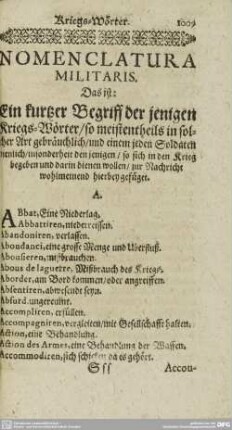 Kriegs-Wörter. 1009
NOMENCLATURA
MILITARIS.
Das ist:
Ein kurtzer Begriff der jenigen
Kriegs-Wörter/ so meistentheils in sol-
cher Art gebräuchlich/ und einem jeden Soldaten
insonderheit den jenigen / so sich in den Krieg
begeben und darin dienen wollen / zur Nachricht
wohlmeinend hierbey gefüget.
A.
ABbat, Eine Niederlag.
Abbattiren, niederreissen.
Abandoniren, verlassen.
Abondanci, eine grosse Menge und Überfluß.
Abousieren, mißbrauchen.
Abous de laguerre, Mißbrauch des Kriegs.
Aborder, am Bord kommen/ oder angreiffen.
Absentiren, abwesendt seyn.
Absurd, ungereimt.
Accompliren, erfüllen.
Accompagniren, vergleiten/ mit Gesellschafft halten.
Action, eine Behandlung.
Action des Armes, eine Behandlung der Waffen.
Accommodiren, sich schicken da es gehört.
Sss Accou-